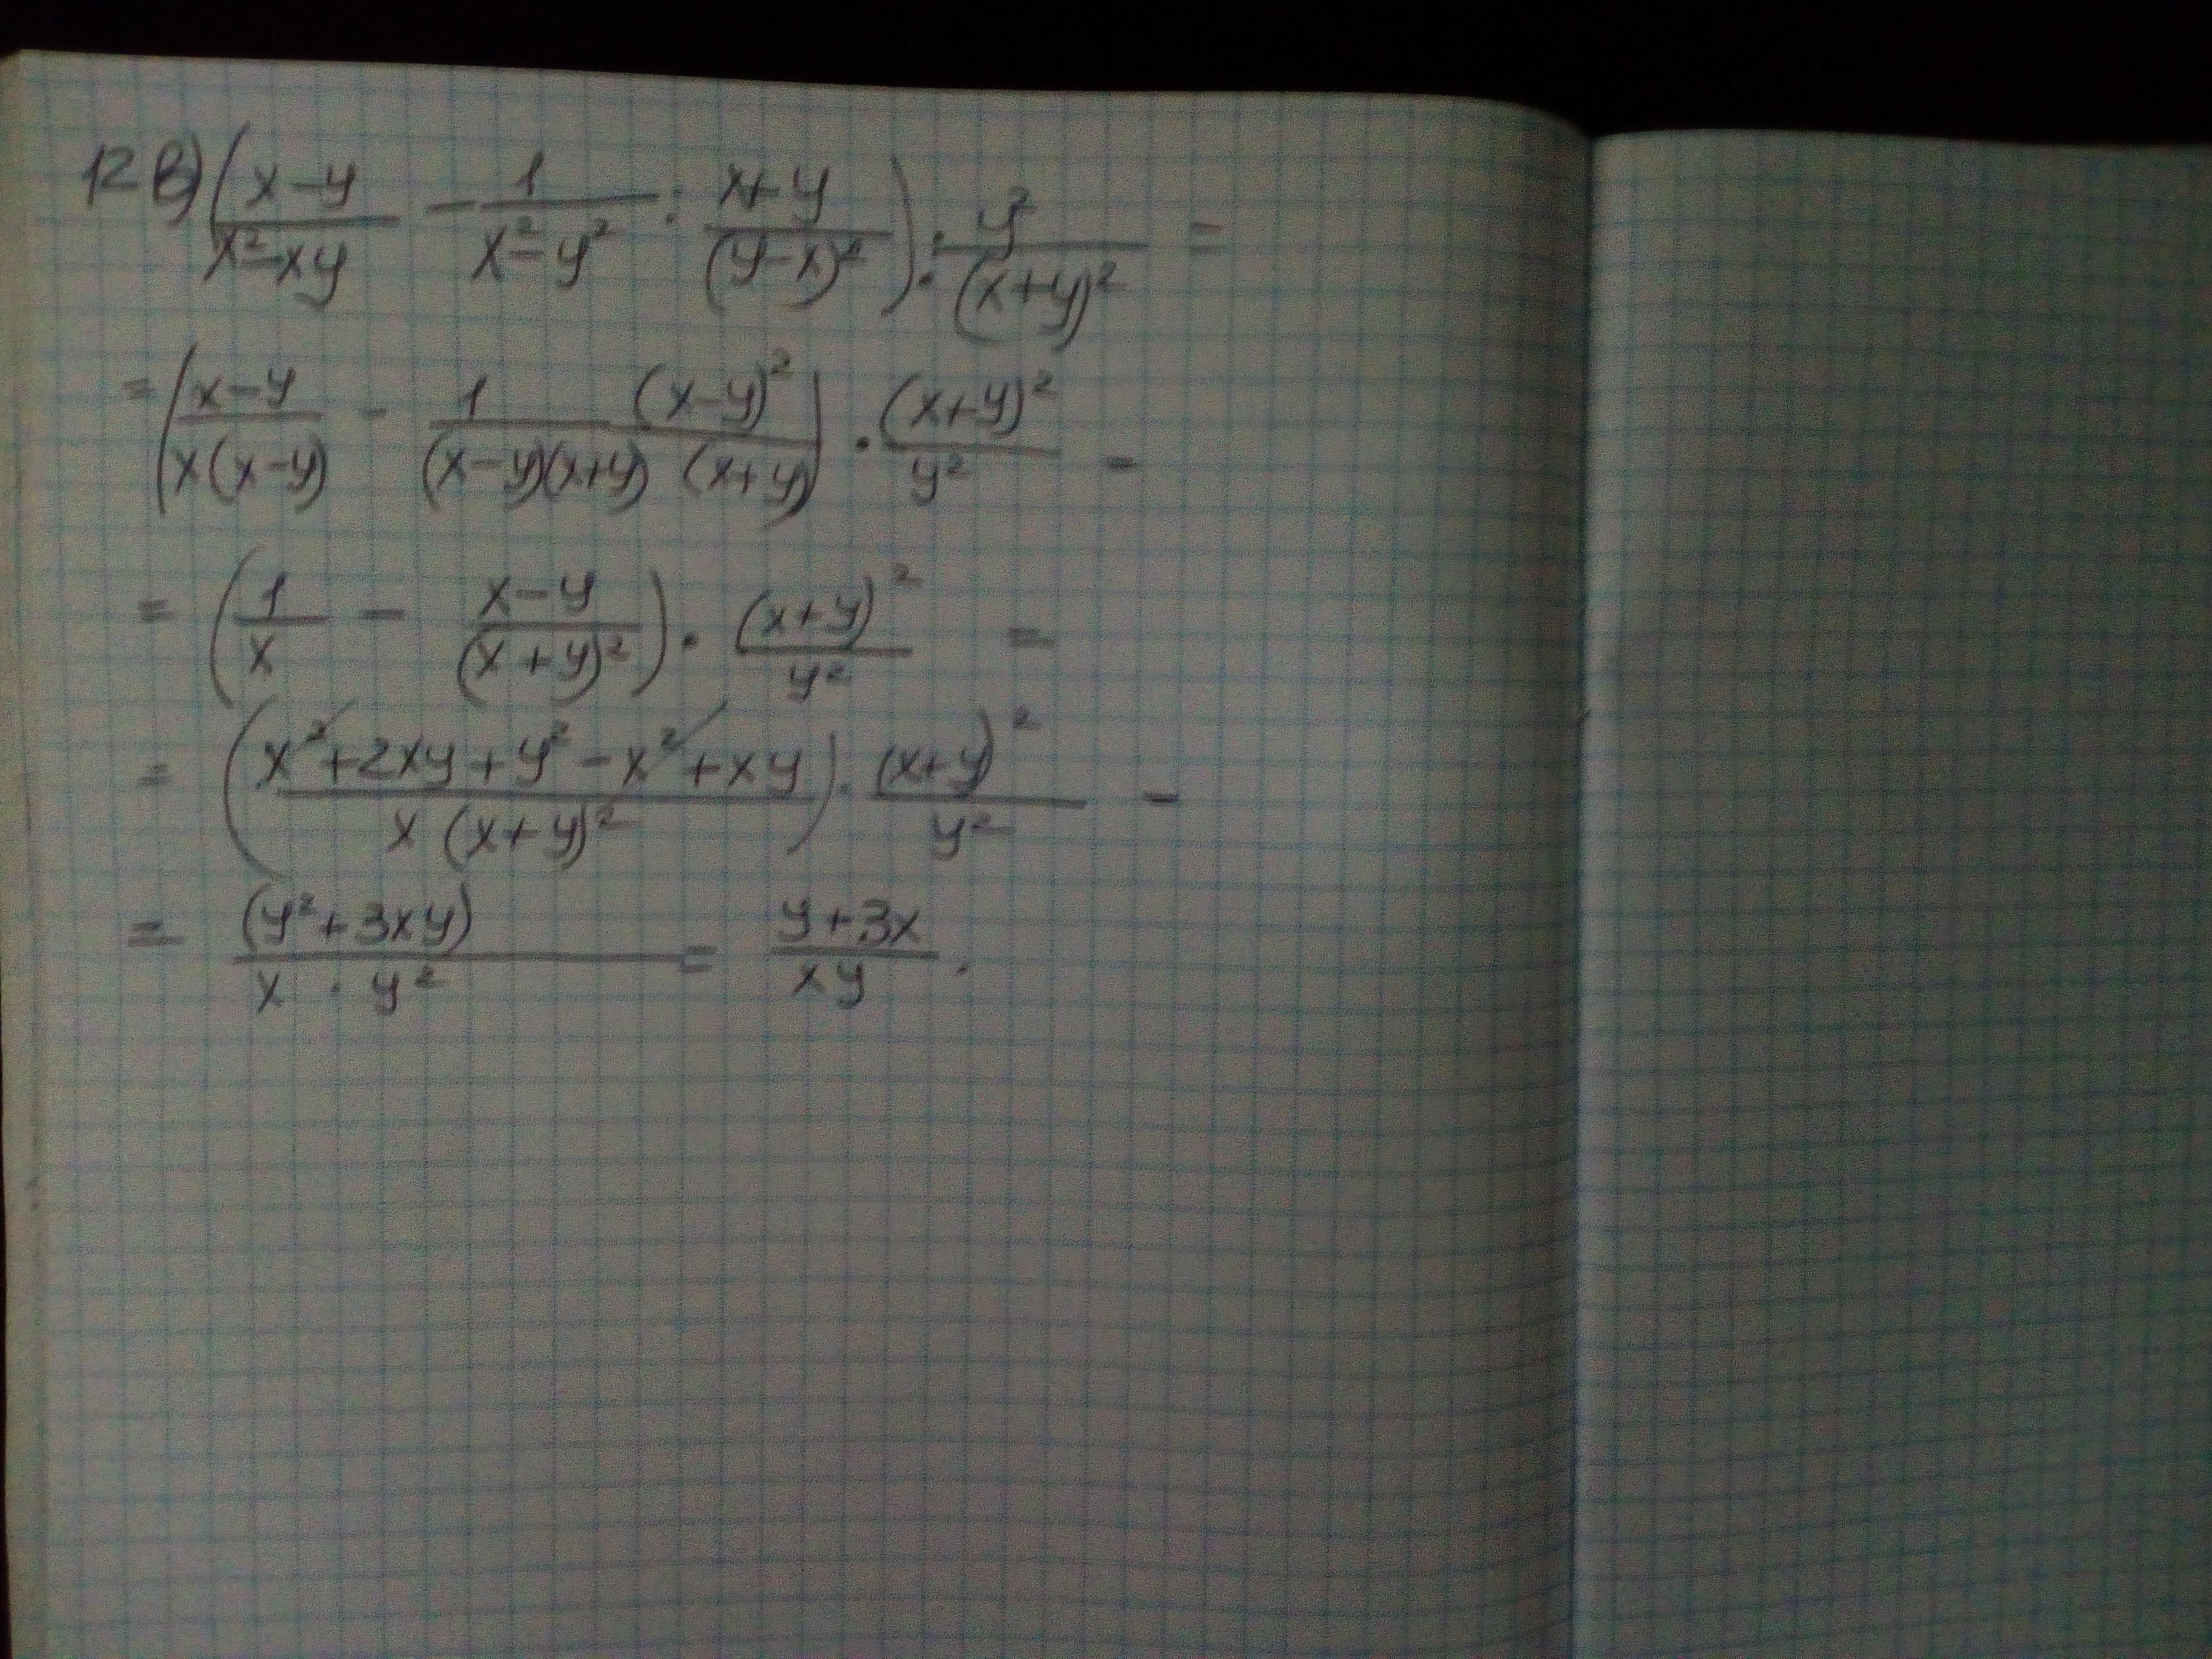 12 в) ( (x-y)/(x²-xy) - 1/(x²-y²) : (x+y)/(y-x)² ) : y²/(x+y)² =
= ( (x-y)/(x(x-y)) - 1 (x-y)²/((x-y)(x+y) (x+y)) ) · (x+y)²/y² -
= ( 1/x - (x-y)/(x+y)² ) · (x+y)²/y² =
= ( (x²+2xy+y²-x²+xy)/(x (x+y)²) ) · (x+y)²/y² -
= (y²+3xy)/(x · y²) = (y+3x)/(xy) .